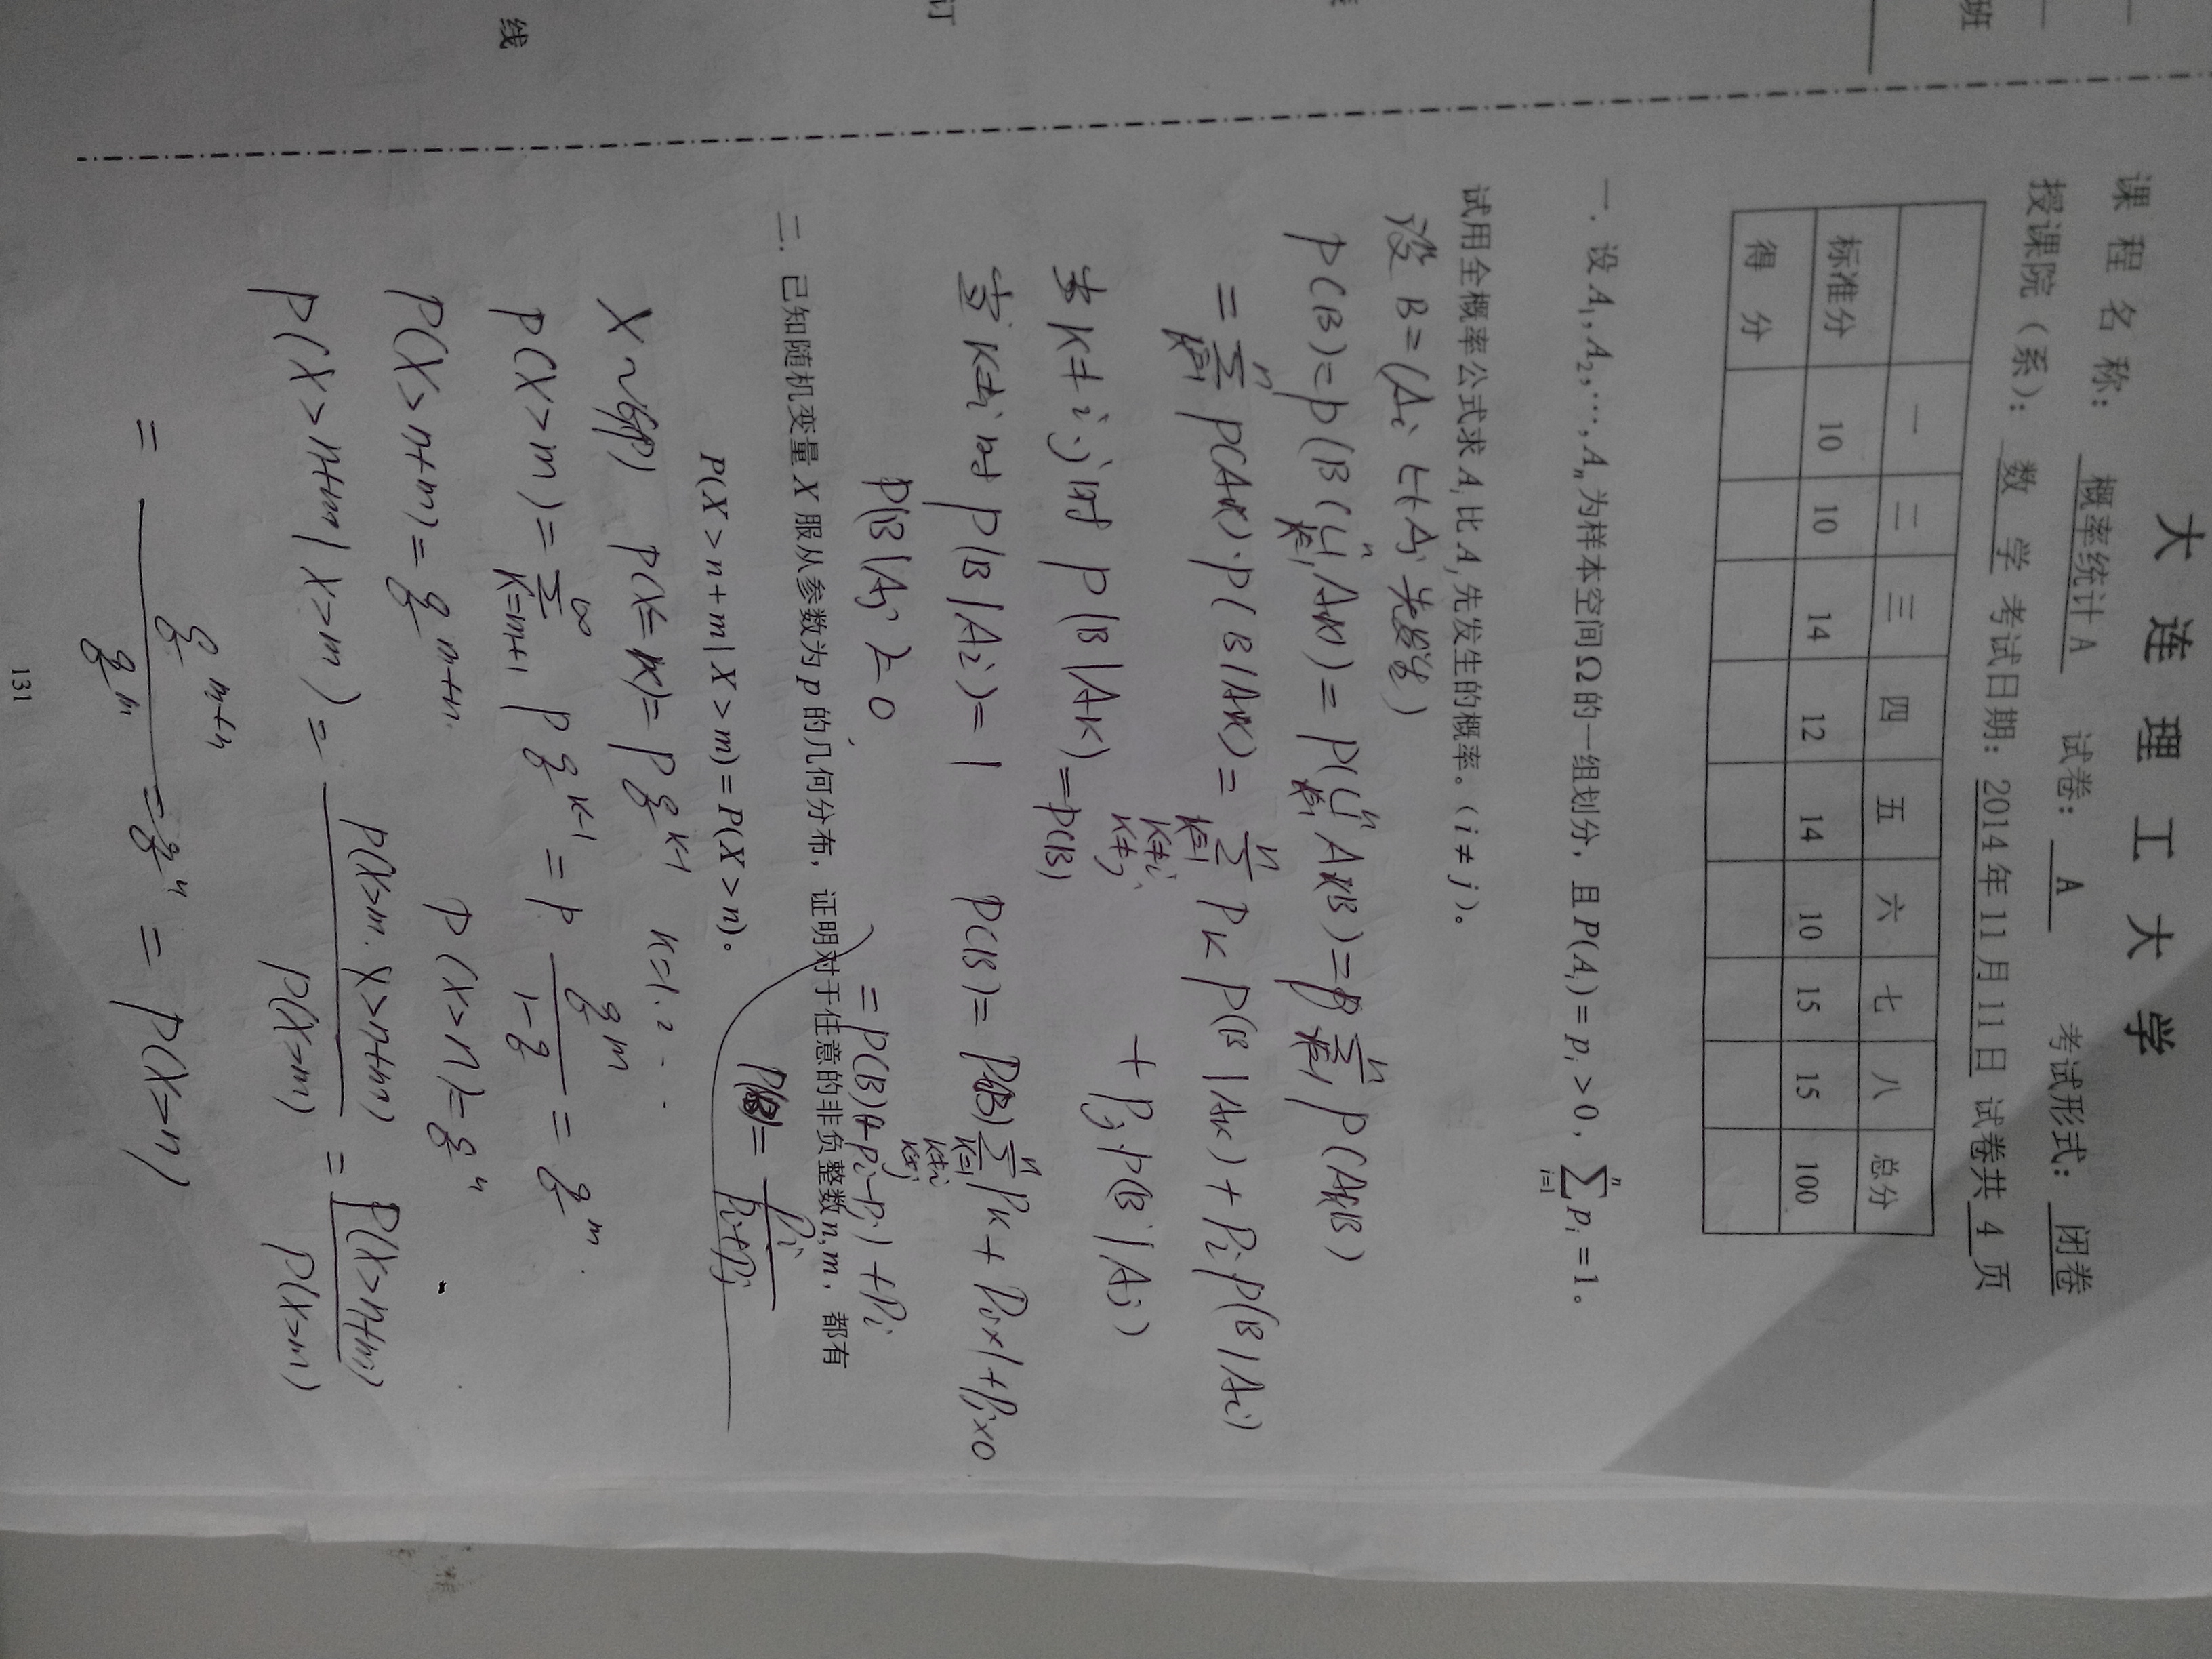 大 连 理 工 大 学
课 程 名 称: 概率统计 A 试卷: A 考试形式: 闭卷
授课院（系）: 数 学 考试日期: 2014 年 11 月 11 日 试卷共 4 页
一 二 三 四 五 六 七 八 总分
标准分 10 10 14 12 14 10 15 15 100
得 分
一. 设 A₁, A₂, ⋯, Aₙ 为样本空间 Ω 的一组划分，且 P(Aᵢ) = pᵢ > 0，∑ᵢ₌₁ⁿ pᵢ = 1。
试用全概率公式求 Aᵢ 比 Aⱼ 先发生的概率。（i ≠ j）。
设 B = (Ai 比 Aj 先发生)
P(B) = P(B(⋃ₖ₌₁ⁿ Ak)) = P(⋃ₖ₌₁ⁿ AkB) = ∑ₖ₌₁ⁿ P(AkB)
= ∑ₖ₌₁ⁿ P(Ak)·P(B|Ak) = ∑ₖ₌₁ⁿ Pk P(B|Ak) + Pi P(B|Ai)
k≠i
k≠j
+ Pj P(B|Aj)
当 k ≠ i,j 时 P(B|Ak) = P(B)
当 k=i 时 P(B|Ai) = 1 P(B) = P(B) ∑ₖ₌₁ⁿ Pk + Pi×1 + Pj×0
k≠i
k≠j
P(B|Aj) = 0 = P(B)(1-Pi-Pj) + Pi
P(B) = Pi / (Pi+Pj)
二. 已知随机变量 X 服从参数为 p 的几何分布，证明对于任意的非负整数 n, m，都有
P(X > n + m | X > m) = P(X > n)。
X ~ G(p) P(X=k) = p q^(k-1) k=1.2...
P(X>m) = ∑ₖ₌ₘ₊₁^∞ p q^(k-1) = p q^m / (1-q) = q^m.
P(X>n+m) = q^(m+n). P(X>n) = q^n
P(X>n+m | X>m) = P(X>m. X>n+m) / P(X>m) = P(X>n+m) / P(X>m)
= q^(m+n) / q^m = q^n = P(X>n)
131
班
订
线